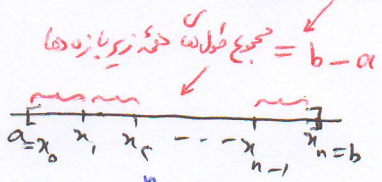 مجموع طول‌های همه زیربازه‌ها = b - a
a = x₀ x₁ x₂ - - - - x_{n-1} x_n = b